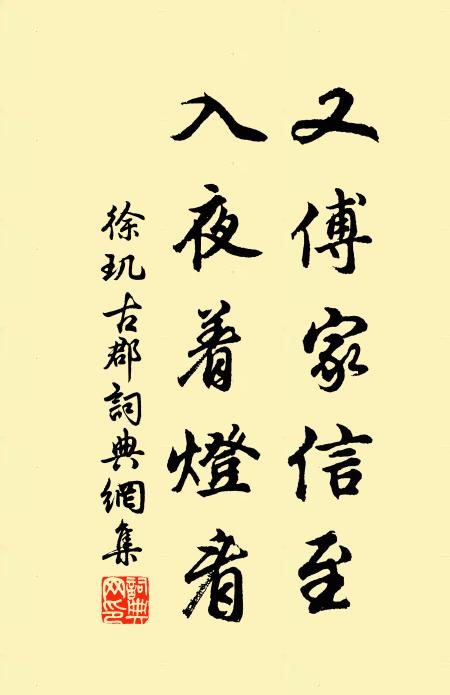 又傅家信至
入夜着燈看
徐玑古郡詞典網集
詞典网印